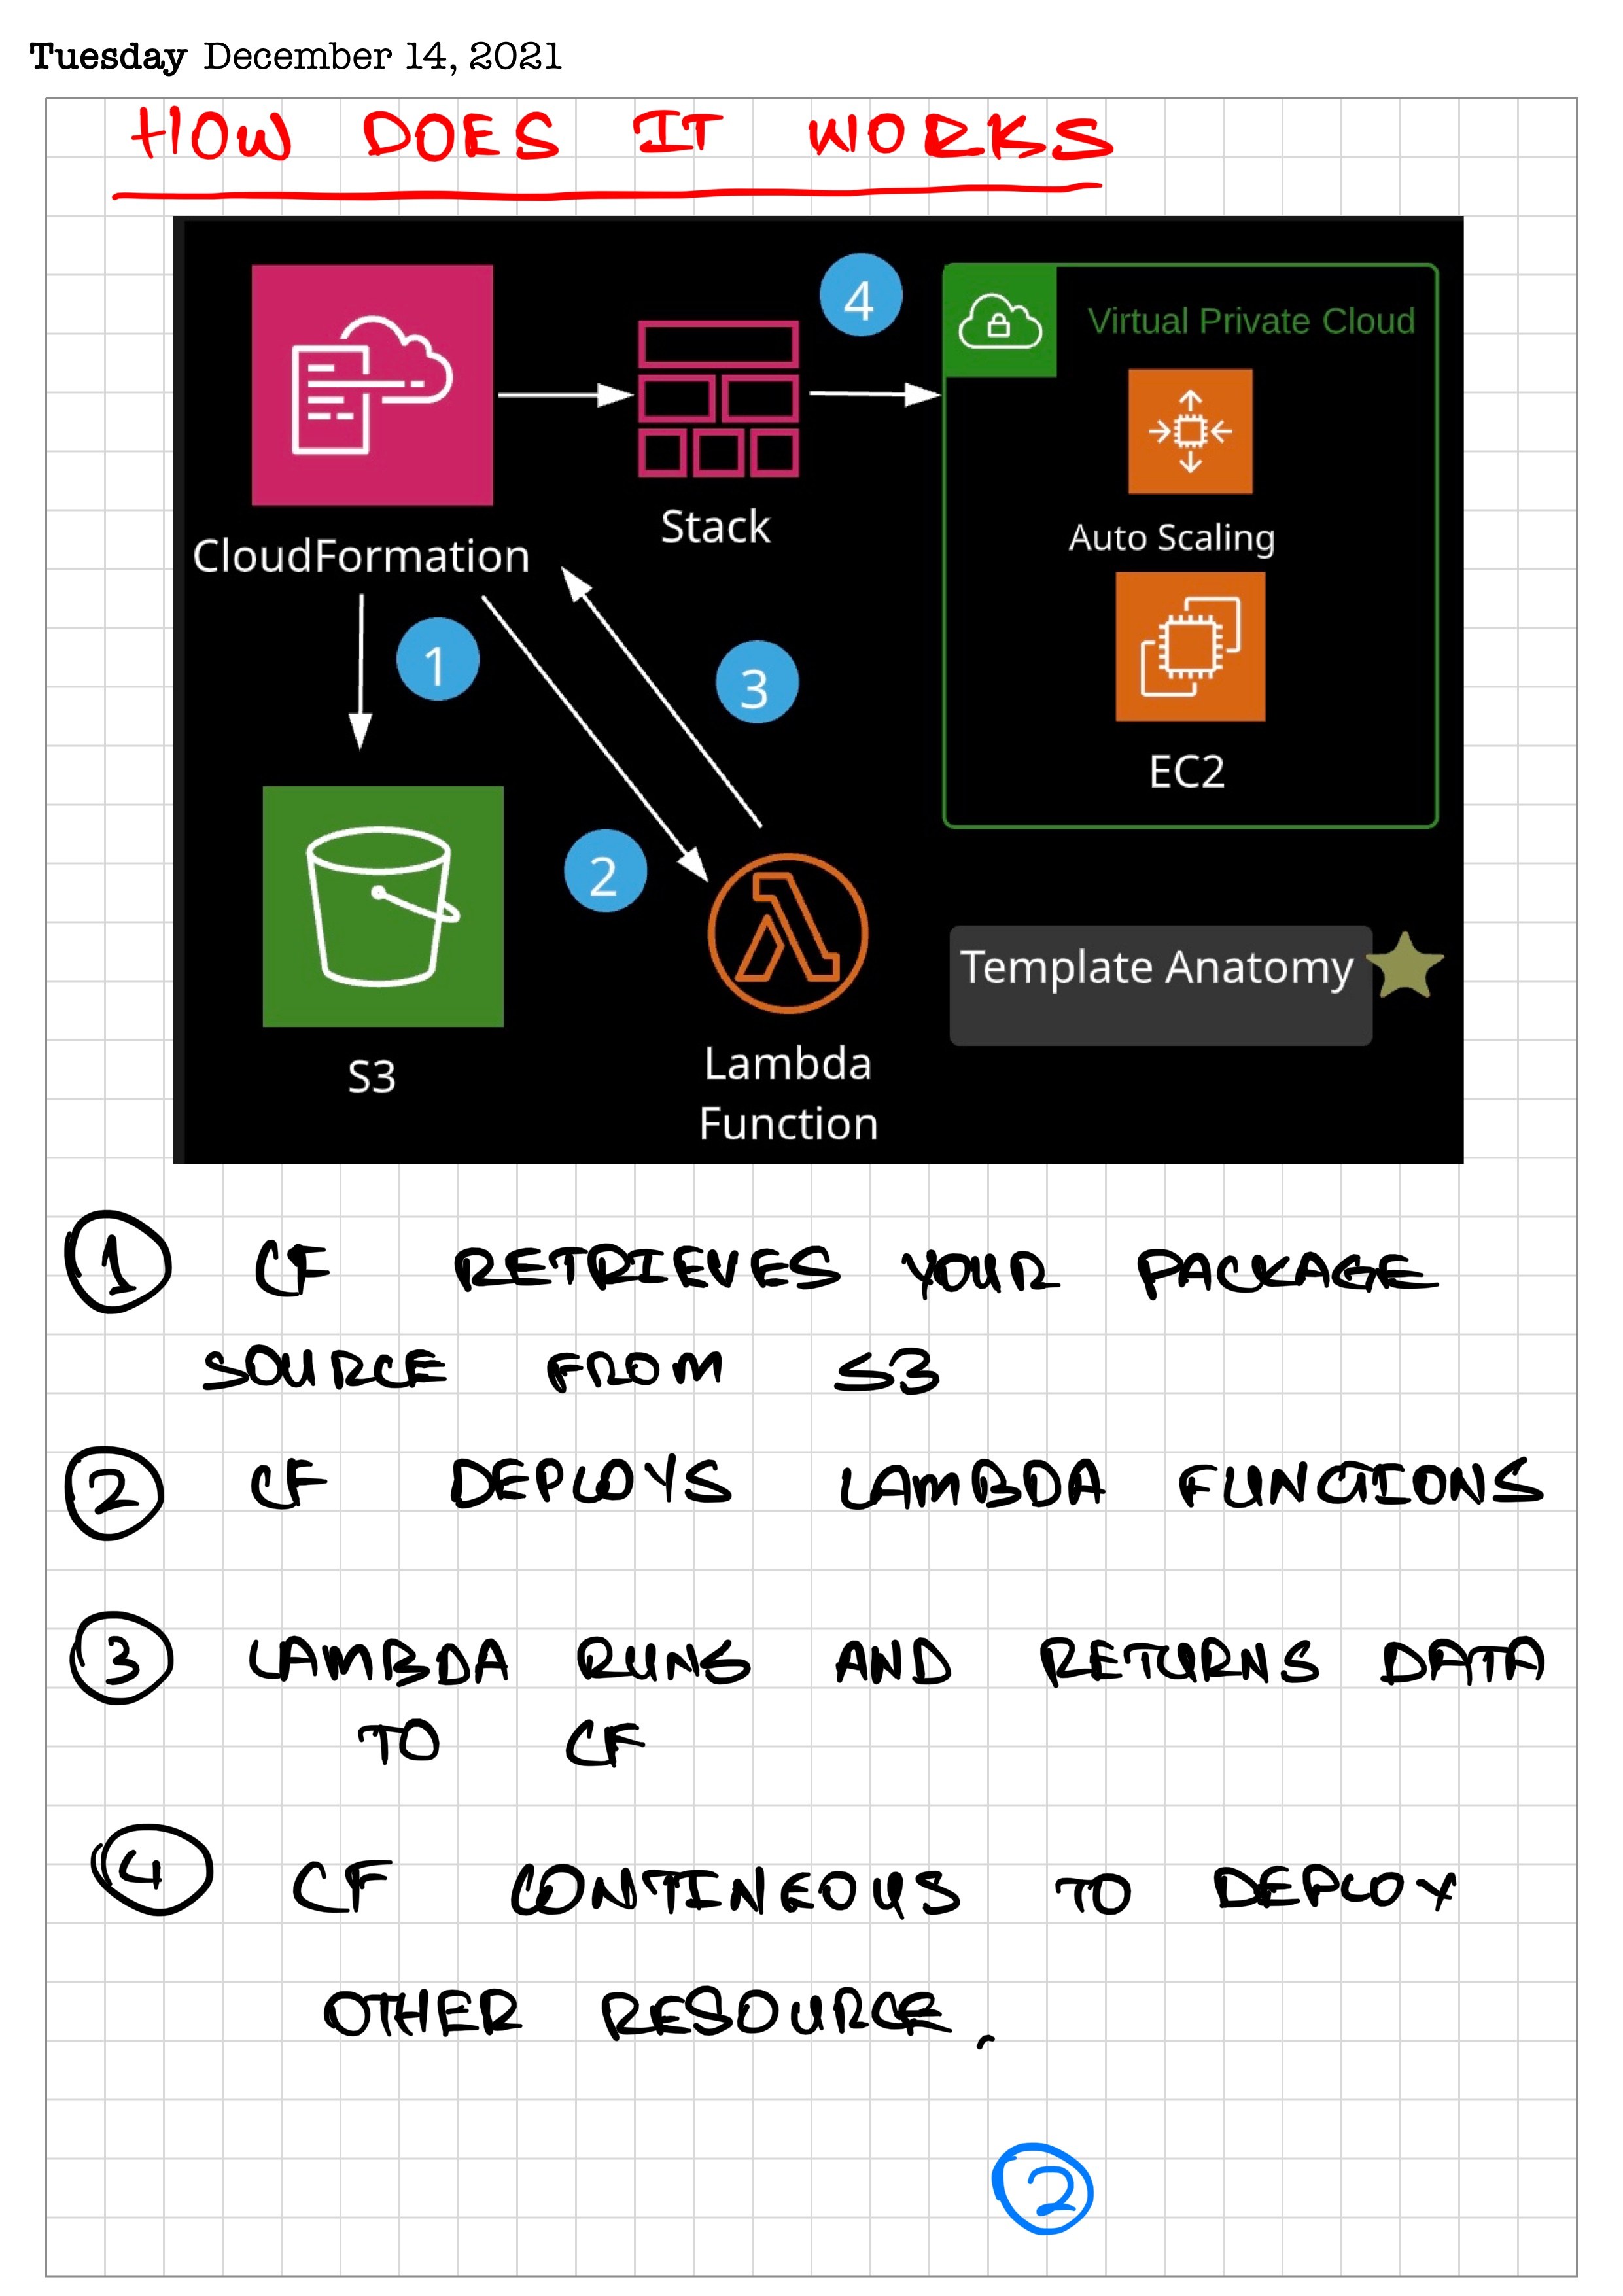 Tuesday December 14, 2021
HOW DOES IT WORKS
4
Virtual Private Cloud
Stack
Auto Scaling
CloudFormation
1
3
EC2
2
Template Anatomy
S3
Lambda
Function
1 CF RETRIEVES YOUR PACKAGE
SOURCE FROM S3
2 CF DEPLOYS LAMBDA FUNCTIONS
3 LAMBDA RUNS AND RETURNS DATA
TO CF
4 CF CONTINEOUS TO DEPLOY
OTHER RESOURCE.
2